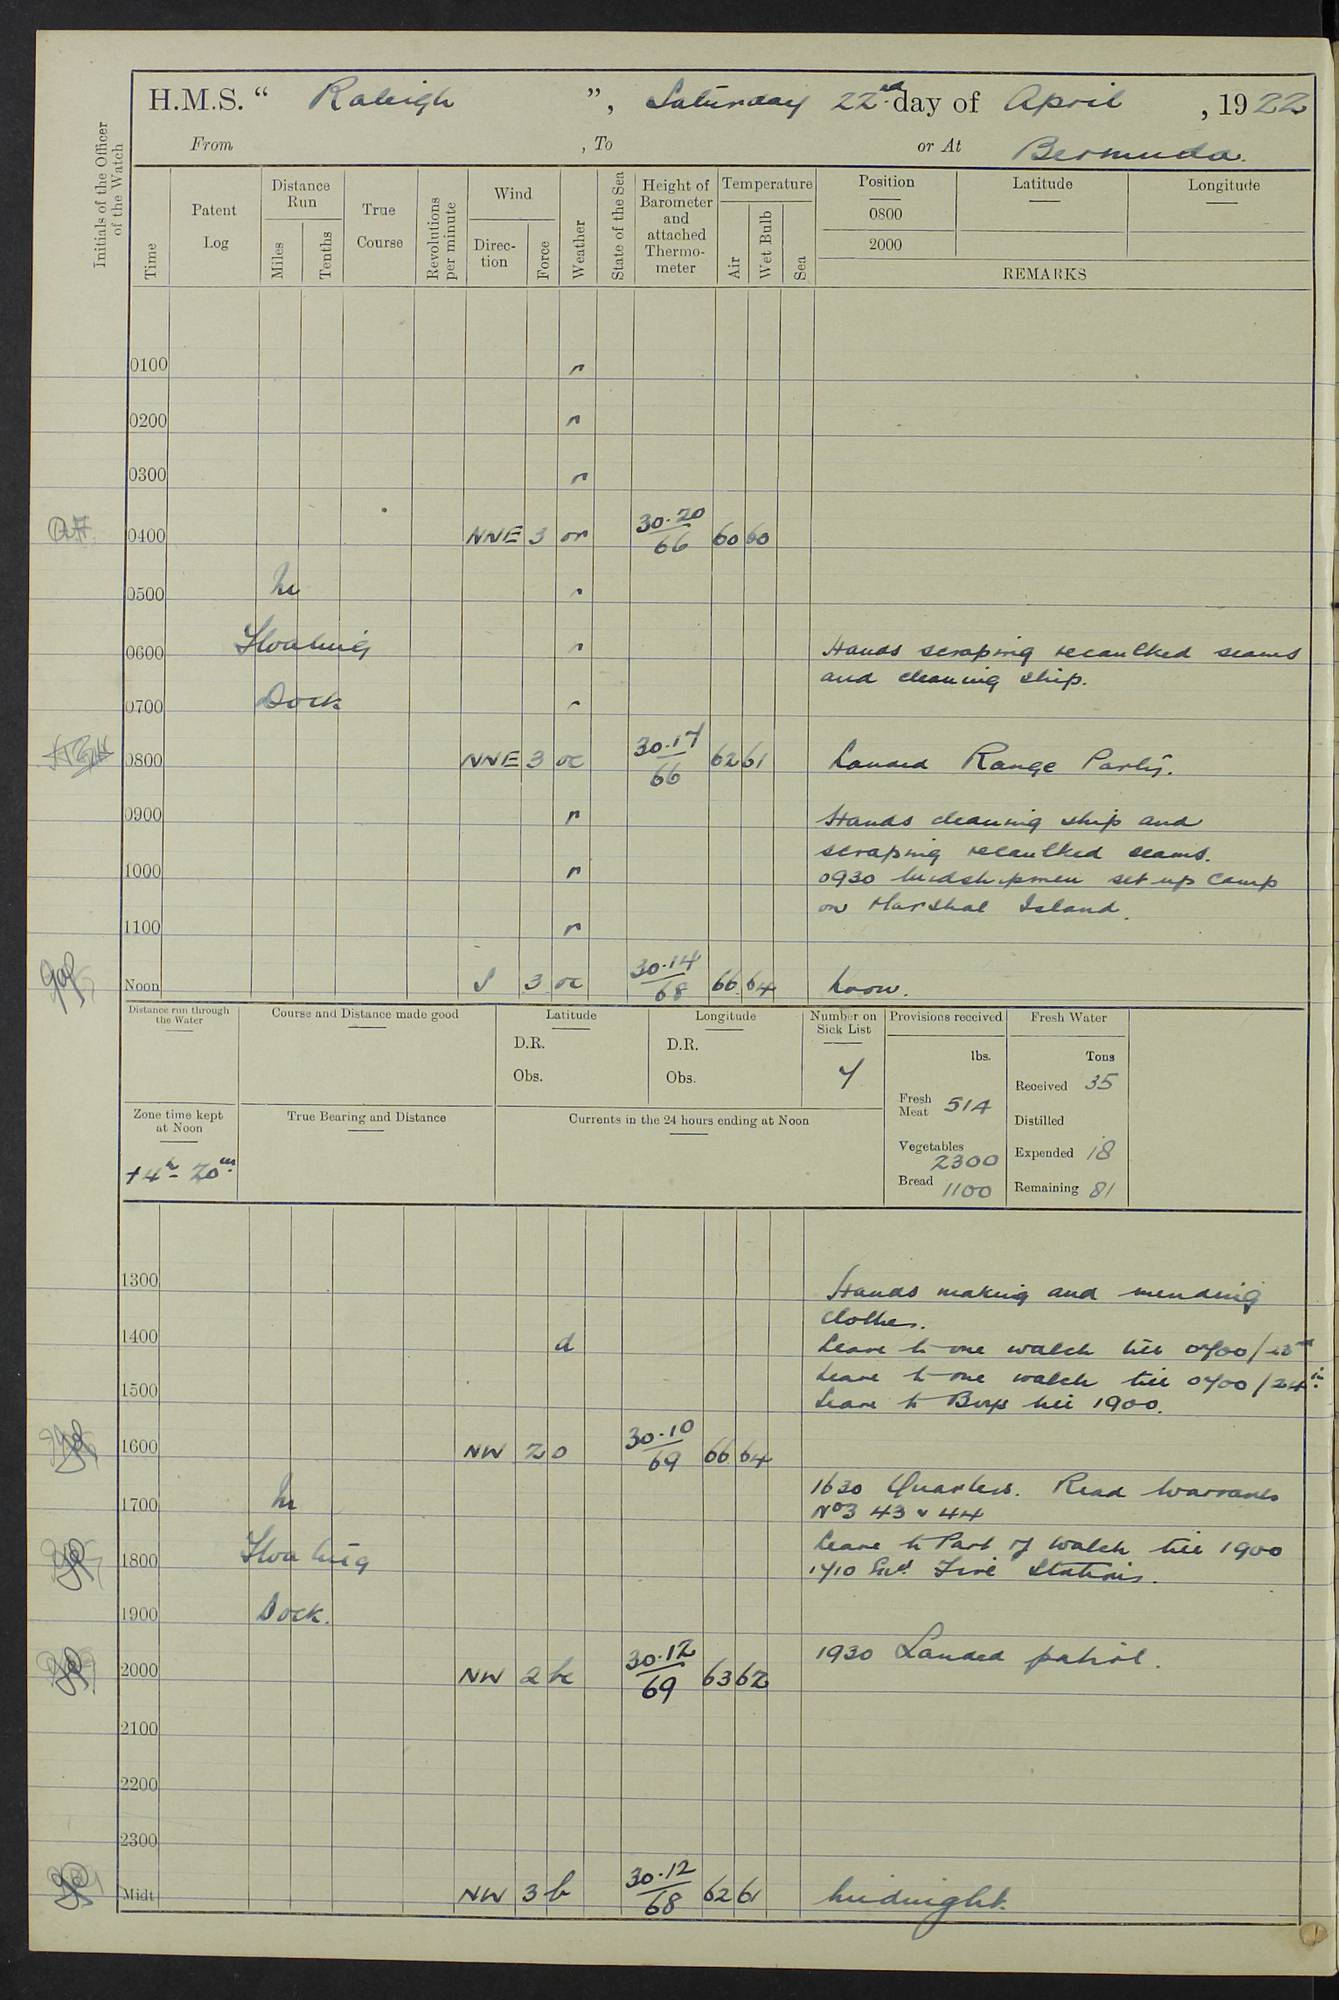 H.M.S. “ Raleigh ”, Saturday 22nd day of April , 1922
From , To or At Bermuda.
Initials of the Officer of the Watch
Time
Patent Log
Distance Run
Miles
Tenths
True Course
Revolutions per minute
Wind
Direc-tion
Force
Weather
State of the Sea
Height of Barometer and attached Thermo-meter
Temperature
Air
Wet Bulb
Sea
Position Latitude Longitude
0800
2000
REMARKS
0100 r
0200 r
0300 r
0400 NNE 3 or 30.20/66 60 60
0500 In r
0600 Floating r Hands scraping recaulked seams
and cleaning ship.
0700 Dock r
0800 NNE 3 oc 30.17/66 62 61 Landed Range Party.
0900 r Hands cleaning ship and
scraping recaulked seams.
1000 r 0930 Midshipmen set up camp
on Marshal Island.
1100 r
Noon S 3 oc 30.14/68 66 64 Noon.
Distance run through the Water
Course and Distance made good
Latitude
D.R.
Obs.
Longitude
D.R.
Obs.
Number on Sick List
7
Provisions received
lbs.
Fresh Meat 514
Vegetables 2300
Bread 1100
Fresh Water
Tons
Received 35
Distilled
Expended 18
Remaining 81
Zone time kept at Noon
+4h- 20m.
True Bearing and Distance
Currents in the 24 hours ending at Noon
1300 Hands making and mending
clothes.
1400 d Leave to one watch till 0700/23rd
Leave to one watch till 0700/24th
1500 Leave to Boys till 1900.
1600 NW 2 o 30.10/69 66 64
1630 Quarters. Read Warrants
1700 In Nos 43 & 44
Leave to Part of Watch till 1900
1800 Floating 1710 Exd. Fire Stations.
1900 Dock.
1930 Landed patrol.
2000 NW 2 bc 30.12/69 63 62
2100
2200
2300
Midt NW 3 b 30.12/68 62 61 Midnight.